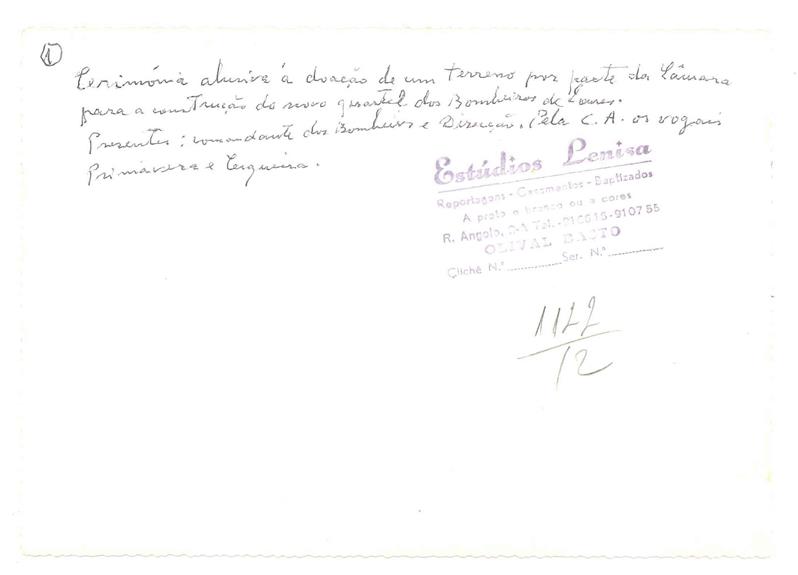 1
Cerimónia alusiva à doação de um terreno por parte da Câmara
para a construção do novo quartel dos Bombeiros de Loures.
Presentes: comandante dos Bombeiros e Direcção, Pela C. A. os vogais
Primavera e Cerqueira.
Estúdios Lenisa
Reportagens - Casamentos - Baptizados
A preto e branco ou a cores
R. Angola, Tel. - 910 55
OLIVAL BASTO
Cliché N.º ............ Ser. N.º ............
1122
12